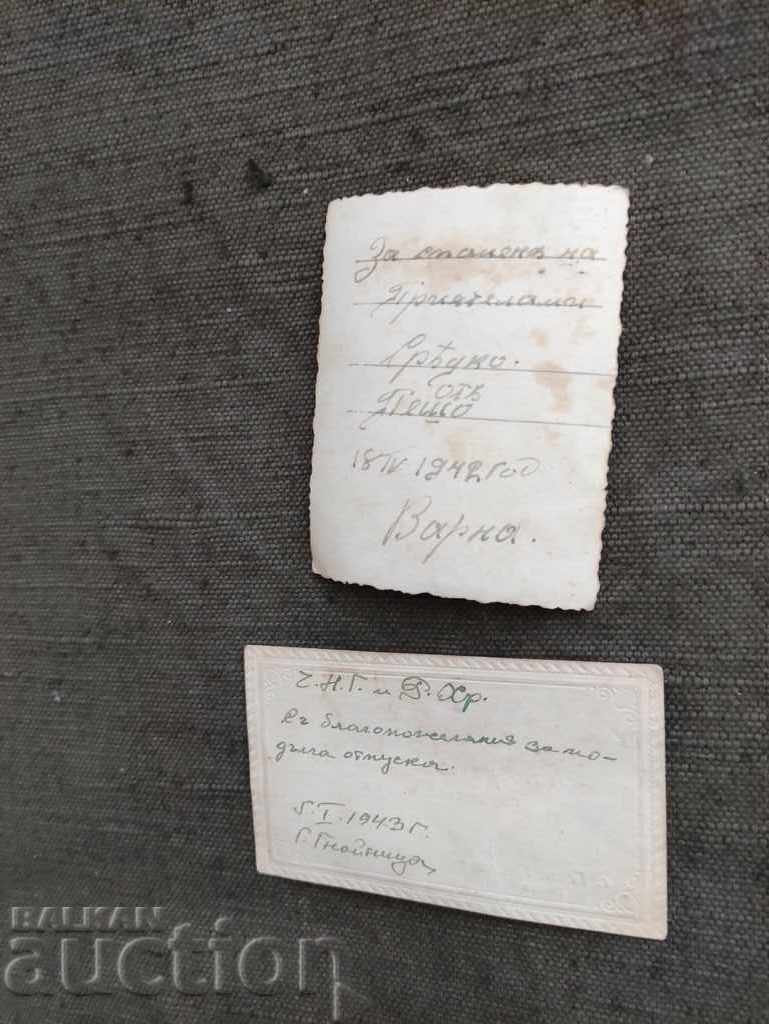 За споменъ на
Приятелями
Срѣдко.
отъ
Пешо
18 IV 1942 год
Варна.
Ч.Н.Г. и Р. Хр.
Съ благопожелания за по-
дълга отпуска.
5.I.1943 г.
BALKAN
auction